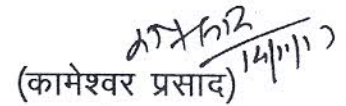 14/11/17
(कामेश्वर प्रसाद)